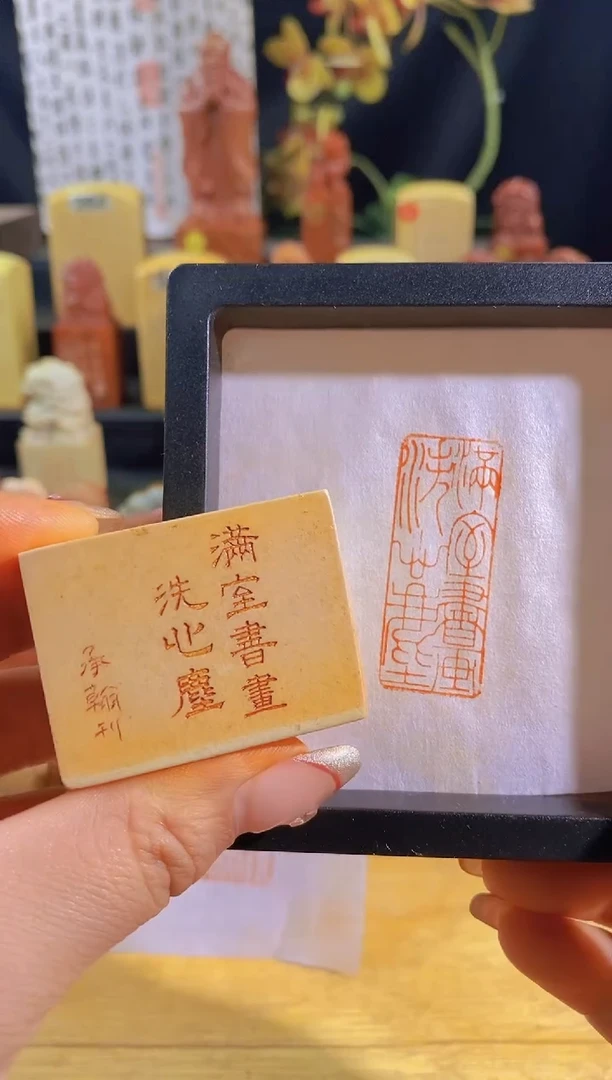 滿室書畫
洗心塵
承翰刊
滿室書畫
洗心塵